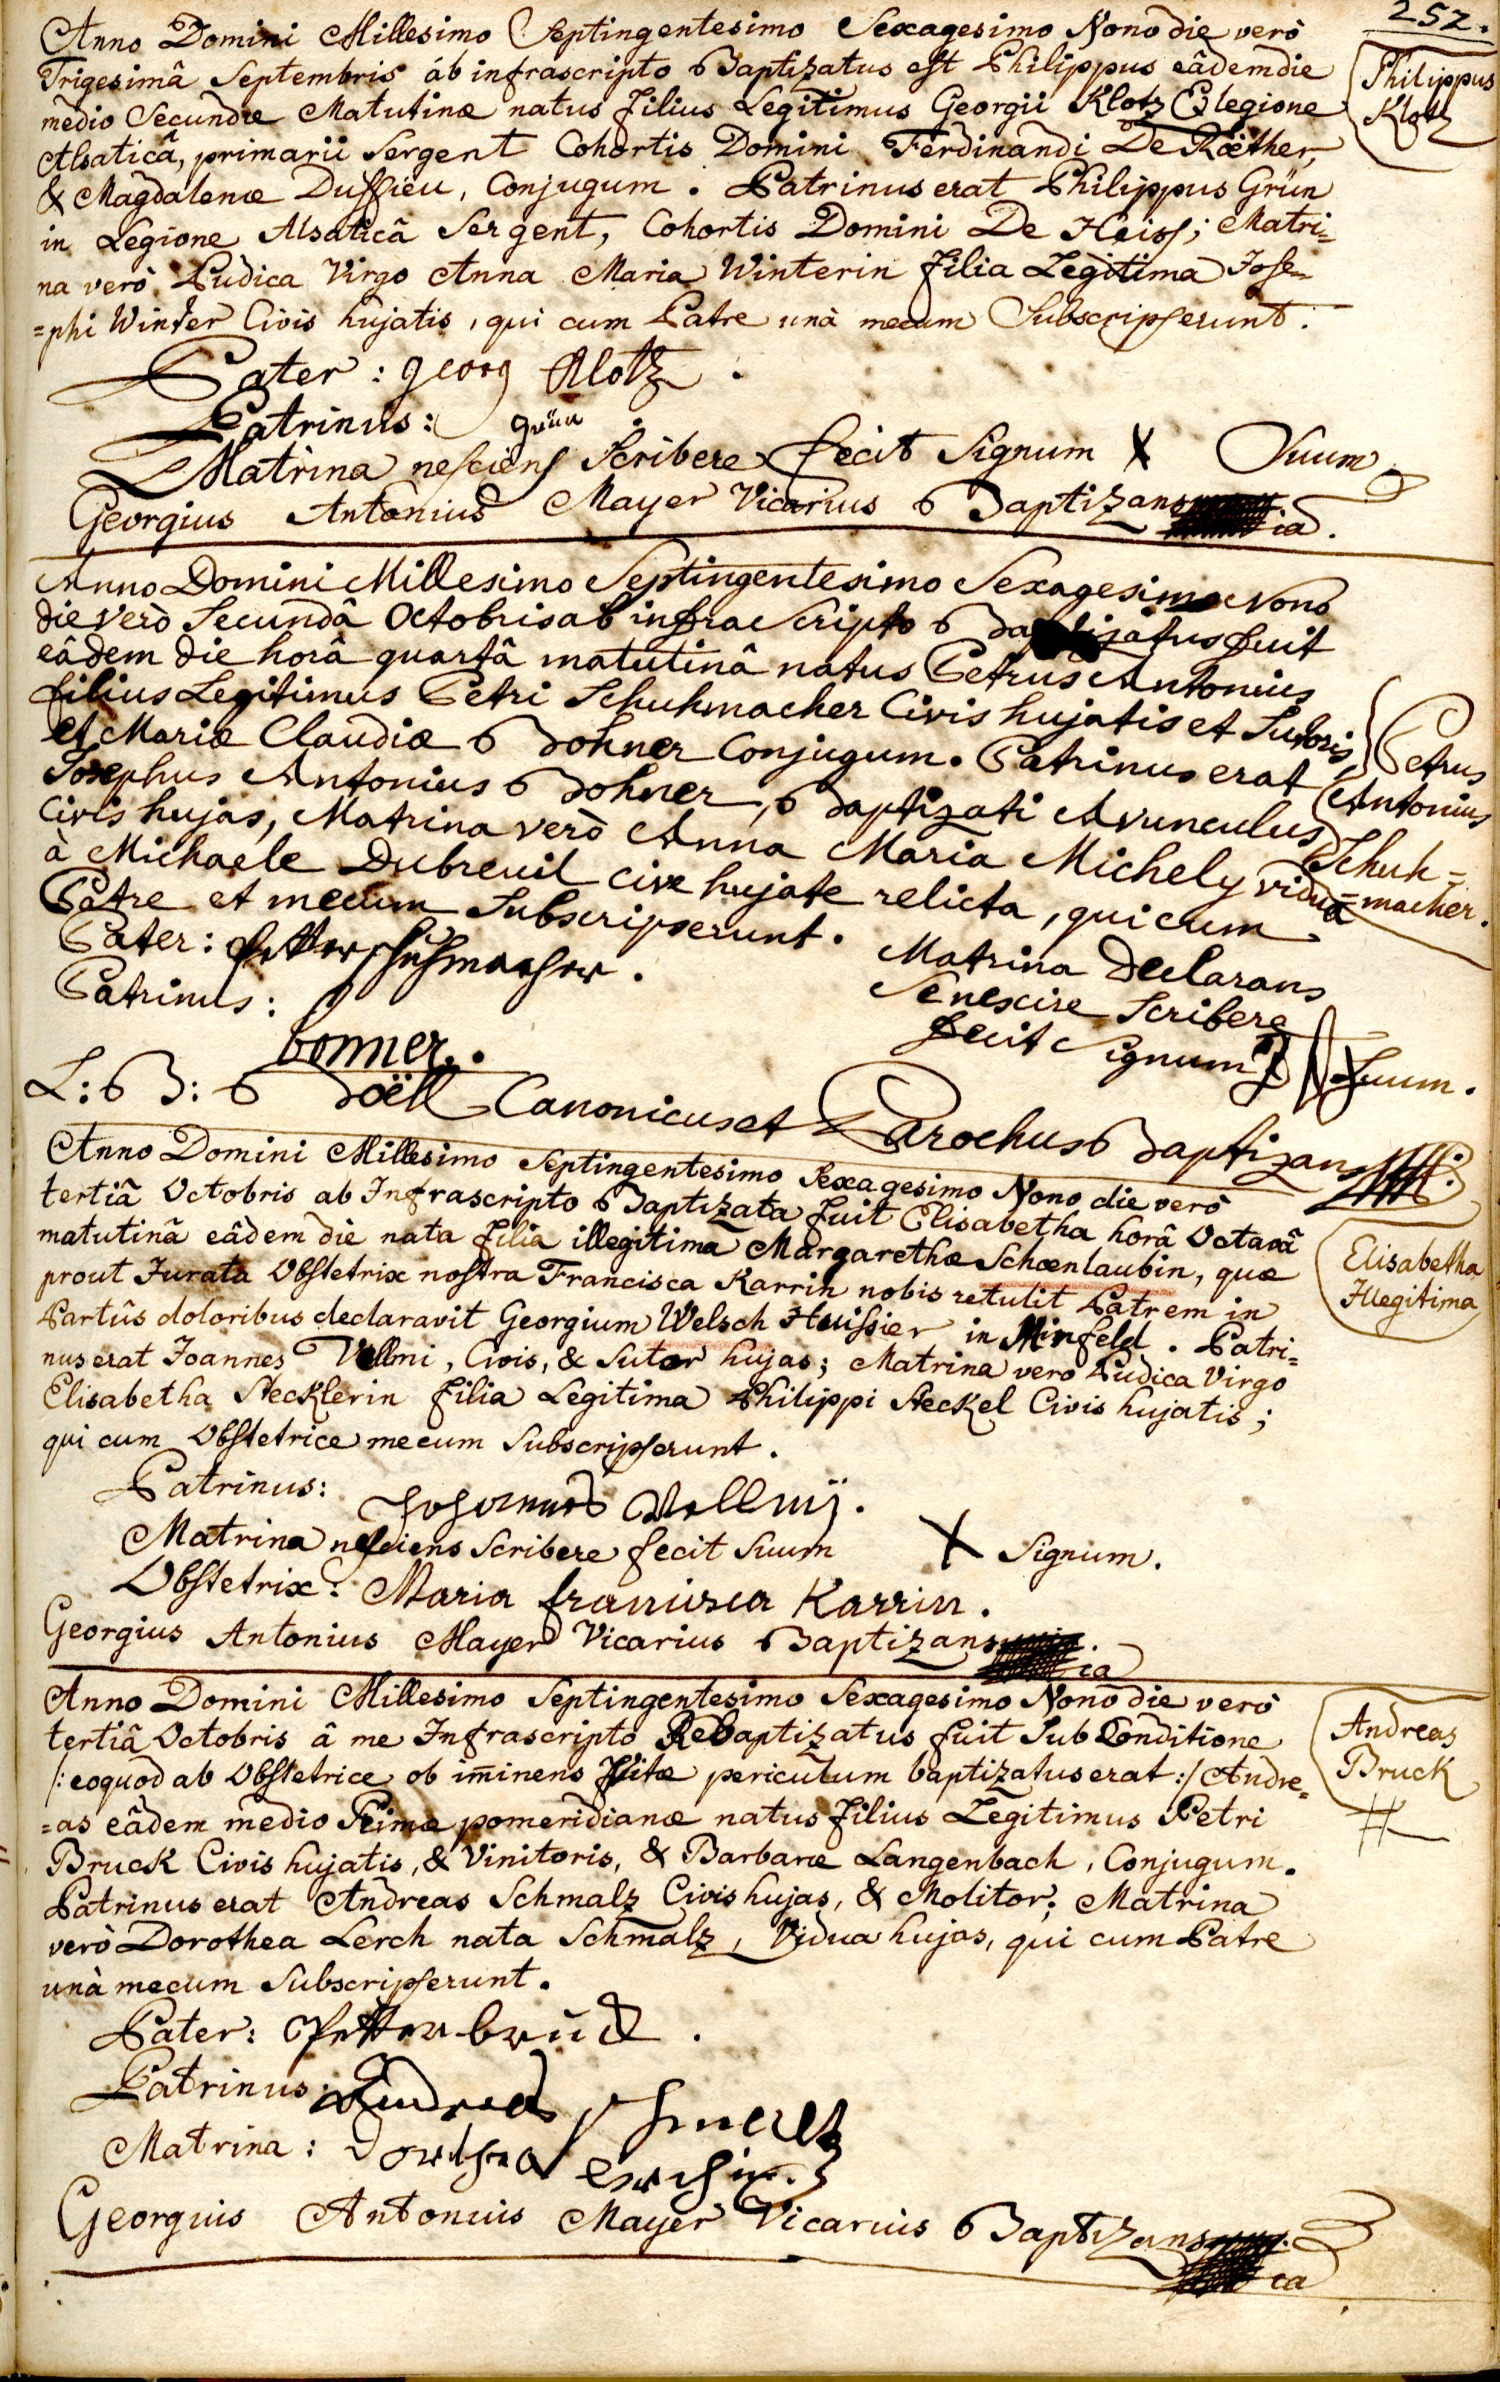 252.
Anno Domini Millesimo Septingentesimo Sexagesimo Nono die verò
Trigesimâ Septembris ab infrascripto Baptizatus est Philippus eâdem die
medio Secundæ Matutinæ natus filius Legitimus Georgii Klotz E legione
Alsaticâ, primarii Sergent Cohortis Domini Ferdinandi De Röether,
& Magdalenæ Dussieu, Conjugum. Patrinus erat Philippus Grün
in Legione Alsaticâ Sergent, Cohortis Domini De Heiss; Matri=
na verò Pudica Virgo Anna Maria Winterin filia Legitima Jose=
=phi Winter Civis hujatis, qui cum Patre unà mecum Subscripserunt.
Philippus
Klotz
Pater: georg Klotz.
Patrinus: grün
Matrina nesciens Scribere fecit Signum X Suum.
Georgius Antonius Mayer Vicarius Baptizans
Anno Domini Millesimo Septingentesimo Sexagesimo Nono
die verò Secundâ Octobris ab infra Scripto Baptizatus fuit
eâdem die horâ quartâ matutinâ natus Petrus Antonius
filius Legitimus Petri Schuhmacher Civis hujatis et Sutoris,
et Mariæ Claudiæ Bohner Conjugum. Patrinus erat
Josephus Antonius Bohner, Baptizati Avunculus
Civis hujas, Matrina verò Anna Maria Michely vidua
à Michaele Dubreuil cive hujate relicta, qui cum
Patre et mecum Subscripserunt.
Petrus
Antonius
Schuh=
=macher.
Pater: Petter schuhmacher.
Patrinus:
bonner.
Matrina Declarans
Se nescire Scribere
fecit Signum Suum.
L: B: Boëll Canonicus et Parochus Baptizans
Anno Domini Millesimo Septingentesimo Sexagesimo Nono die verò
tertiâ Octobris ab Infrascripto Baptizata fuit Elisabetha horâ Octavâ
matutinâ eâdem die nata filia illegitima Margarethæ Schœnlaubin, quæ
prout Jurata Obstetrix nostra Francisca Karrin nobis retulit Patrem in
Partûs doloribus declaravit Georgium Welsch Huissier in Minfeld. Patri=
nus erat Joannes Vellmi, Civis, & Sutor hujas; Matrina vero Pudica Virgo
Elisabetha Stecklerin filia Legitima Philippi Steckel Civis hujatis;
qui cum Obstetrice mecum Subscripserunt.
Elisabetha
Illegitima
Patrinus: Johannes Vellmÿ.
Matrina nesciens Scribere fecit Suum X Signum.
Obstetrix: Maria francisca Karrin.
Georgius Antonius Mayer Vicarius Baptizans
Anno Domini Millesimo Septingentesimo Sexagesimo Nono die verò
tertiâ Octobris â me Infrascripto Rebaptizatus fuit Sub Conditione
/: eoquod ab Obstetrice ob im̅inens Vitæ periculum baptizatus erat :/ Andre=
=as eâdem medio Primæ pomeridianæ natus filius Legitimus Petri
Bruck Civis hujatis, & Vinitoris, & Barbaræ Langenbach, Conjugum.
Patrinus erat Andreas Schmalz Civis hujas, & Molitor; Matrina
verò Dorothea Lerch nata Schmalz, Vidua hujas, qui cum Patre
unà mecum Subscripserunt.
Andreas
Bruck
Pater: Petter bruck.
Patrinus: Andreas schmaltz
Matrina: Dorthea lerchin.
Georgius Antonius Mayer Vicarius Baptizans